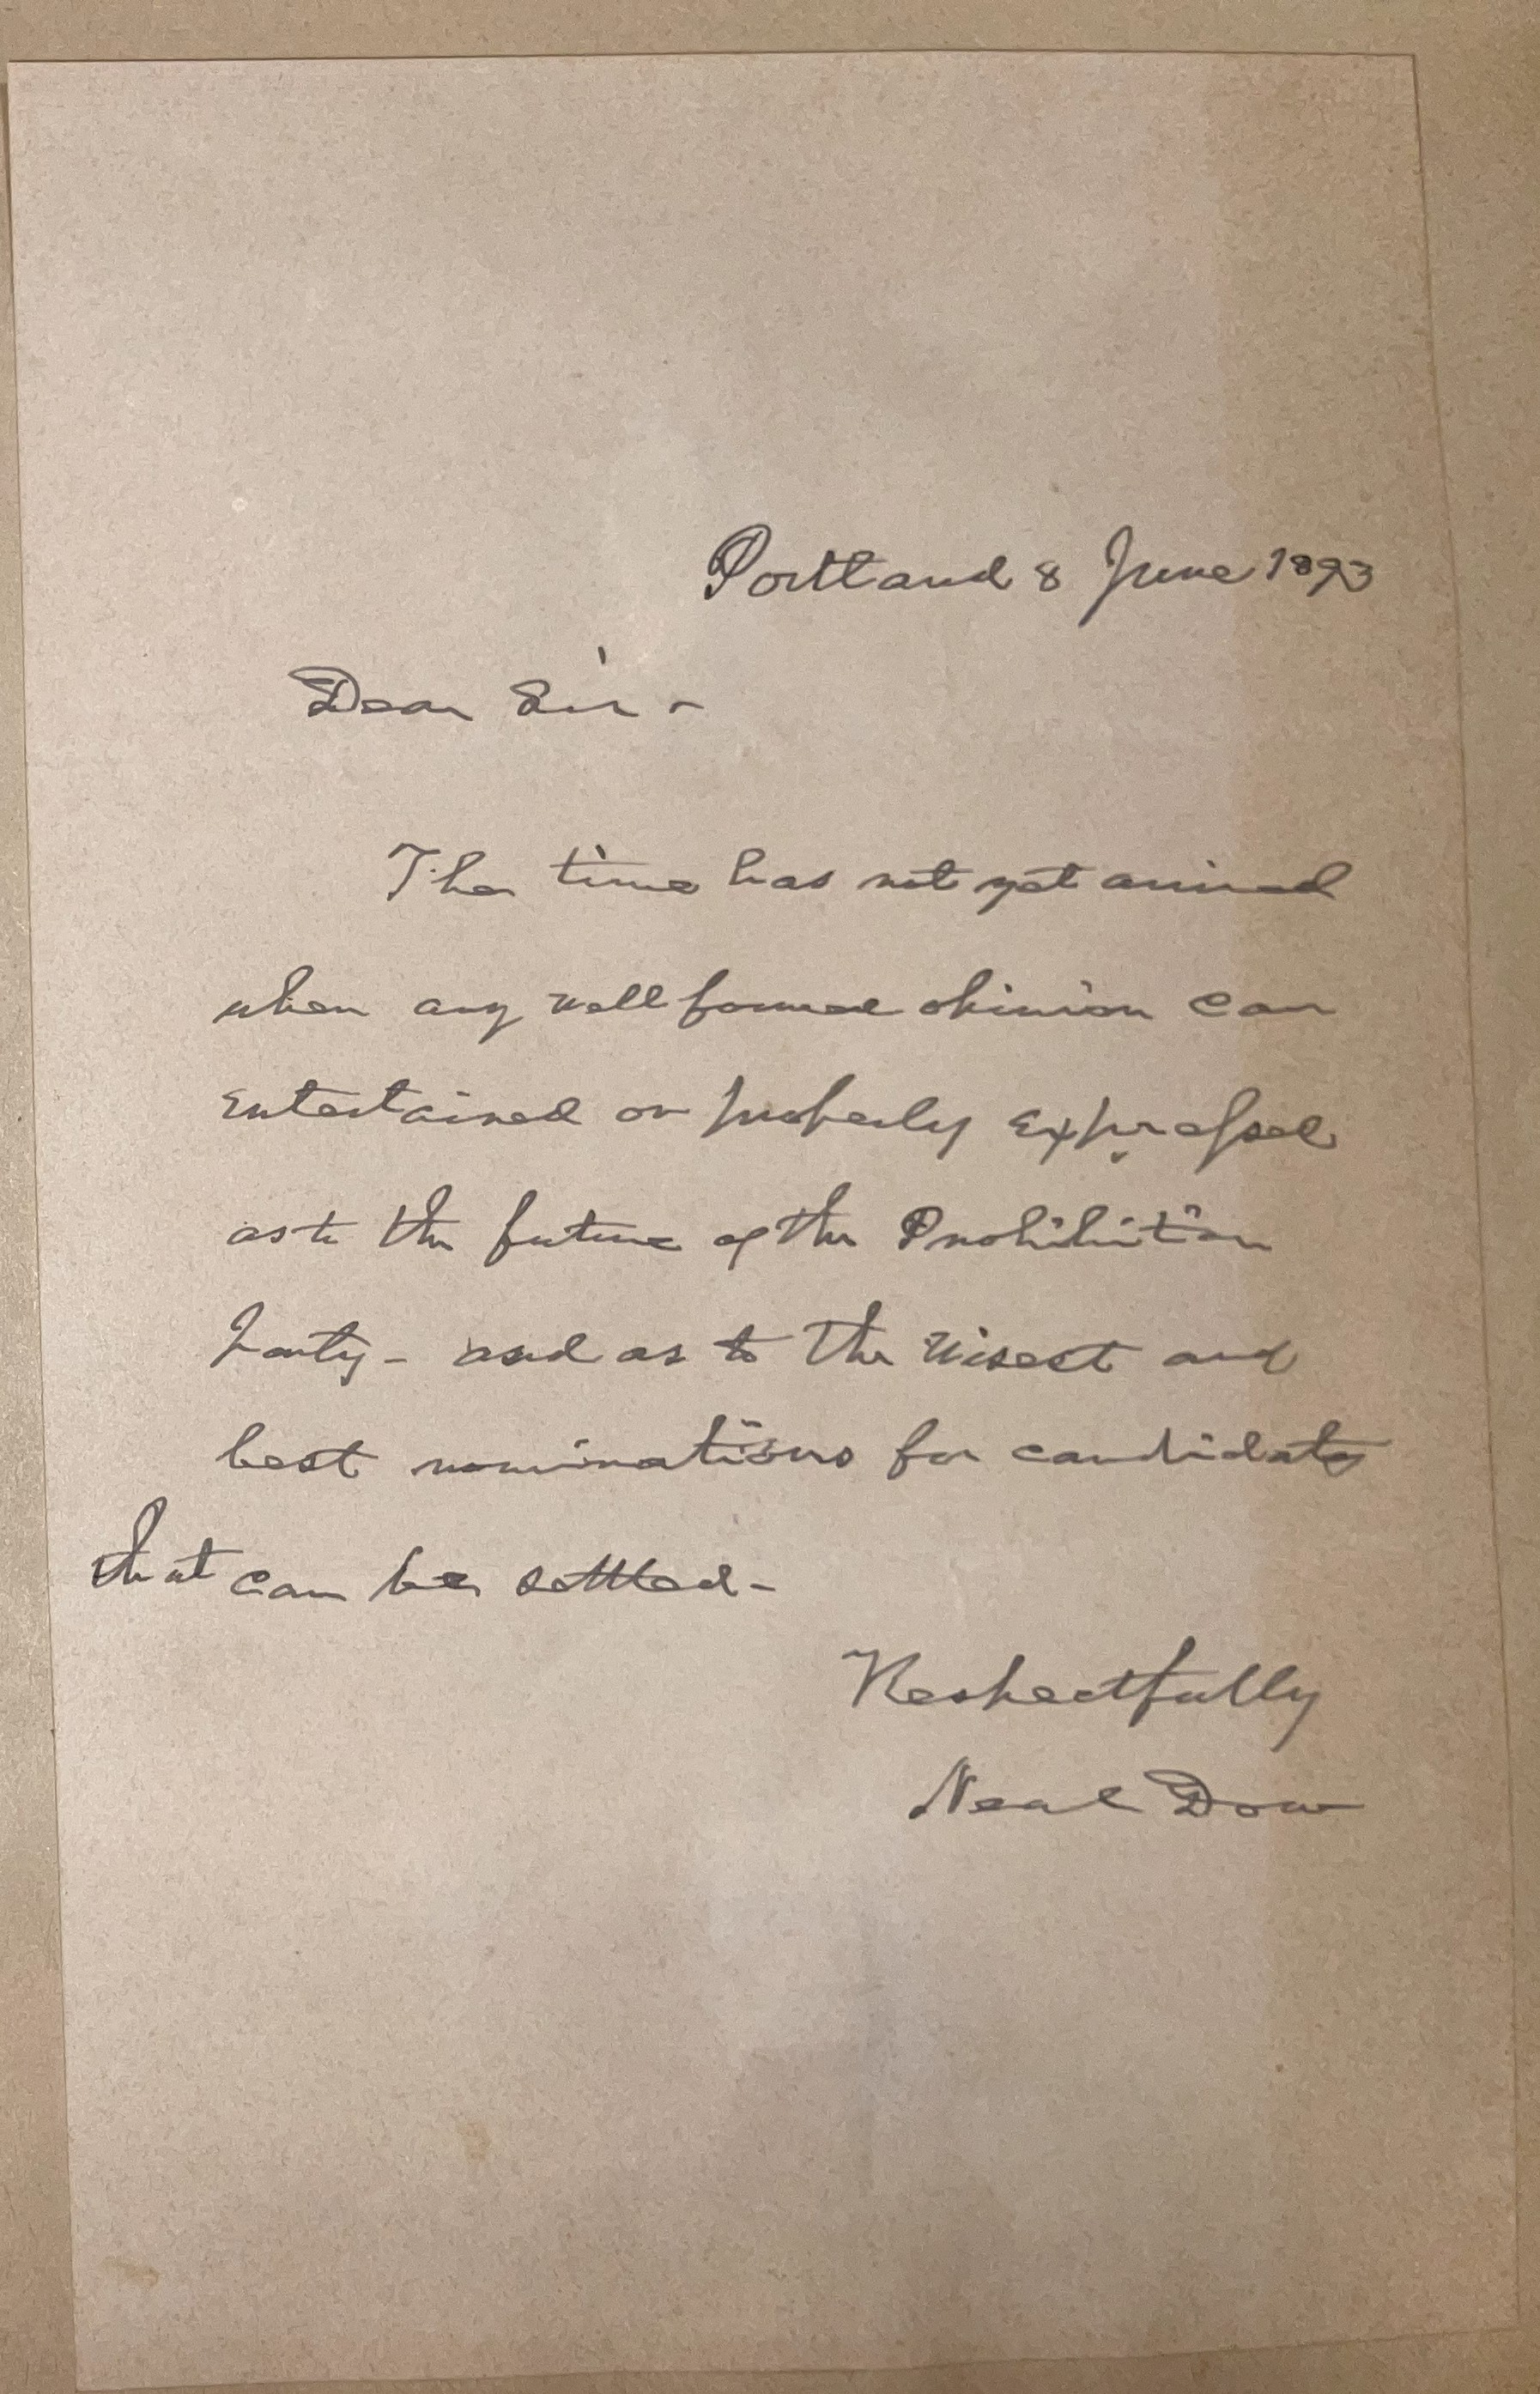 Portland 8 June 1893
Dear Sir -
The time has not yet arrived
when any well formed opinion can
entertained or properly expressed
as to the future of the Prohibition
Party - and as to the wisest and
best nominations for candidates
that can be settled -
Respectfully
Neal Dow